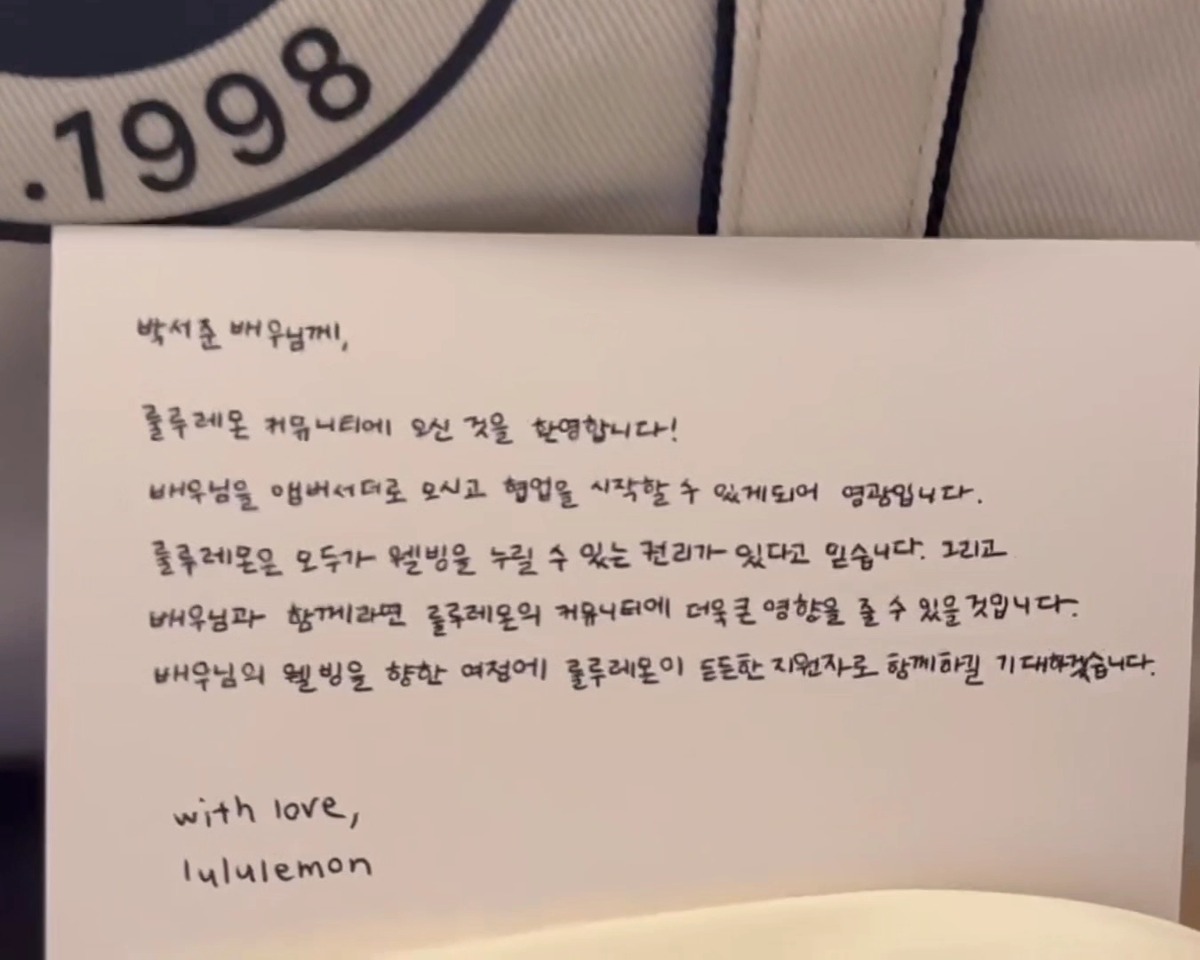 .1998
박서준 배우님께,
룰루레몬 커뮤니티에 오신 것을 환영합니다!
배우님을 앰버서더로 모시고 협업을 시작할 수 있게되어 영광입니다.
룰루레몬은 모두가 웰빙을 누릴 수 있는 권리가 있다고 믿습니다. 그리고
배우님과 함께라면 룰루레몬의 커뮤니티에 더욱 큰 영향을 줄 수 있을것입니다.
배우님의 웰빙을 향한 여정에 룰루레몬이 든든한 지원자로 함께하길 기대하겠습니다.
with love,
lululemon